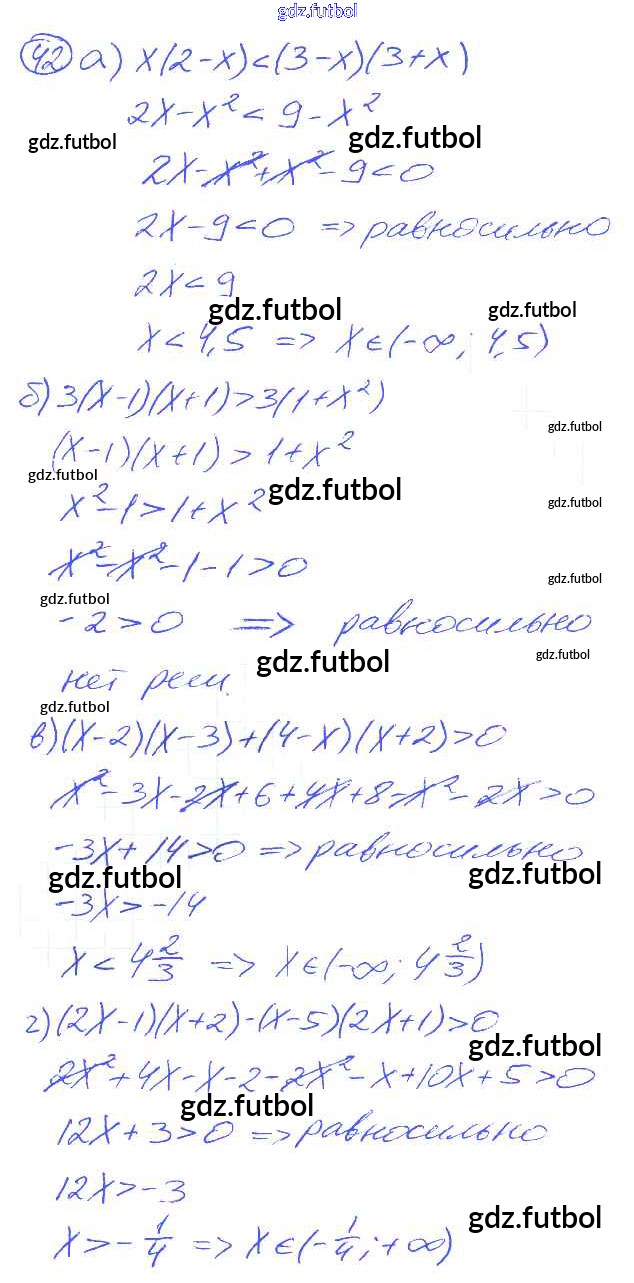 gdz.futbol
42 а) x(2-x)<(3-x)(3+x)
2x-x²<9-x²
gdz.futbol gdz.futbol
2x-x²+x²-9<0
2x-9<0 => равносильно
2x<9
gdz.futbol gdz.futbol
x<4,5 => x∈(-∞; 4,5)
б) 3(x-1)(x+1)>3(1+x²)
gdz.futbol
(x-1)(x+1)>1+x²
gdz.futbol gdz.futbol
x²-1>1+x²
gdz.futbol
x²-x²-1-1>0
gdz.futbol
gdz.futbol
-2>0 => равносильно
gdz.futbol gdz.futbol
нет реш.
gdz.futbol
в) (x-2)(x-3)+(4-x)(x+2)>0
x²-3x-2x+6+4x+8-x²-2x>0
-3x+14>0 => равносильно
gdz.futbol gdz.futbol
-3x>-14
x<4 2/3 => x∈(-∞; 4 2/3)
г) (2x-1)(x+2)-(x-5)(2x+1)>0
gdz.futbol
2x²+4x-x-2-2x²-x+10x+5>0
gdz.futbol
12x+3>0 => равносильно
12x>-3
gdz.futbol
x>-1/4 => x∈(-1/4; +∞)